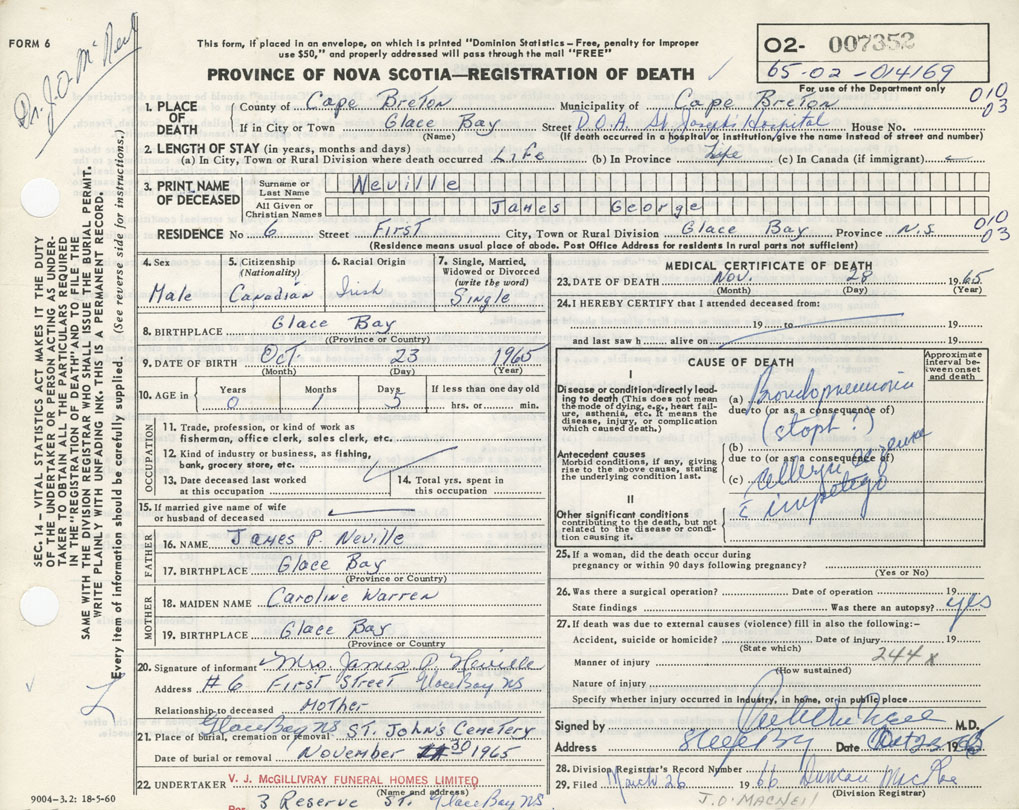 FORM 6
Dr. J.O. McNeil
This form, if placed in an envelope, on which is printed "Dominion Statistics – Free, penalty for improper
use $50," and properly addressed will pass through the mail "FREE"
PROVINCE OF NOVA SCOTIA—REGISTRATION OF DEATH
02- 007352
65-02-014169
For use of the Department only
010
03
1. PLACE OF DEATH
County of Cape Breton Municipality of Cape Breton
If in City or Town Glace Bay Street D.O.A. St. Joseph's Hospital House No.
(Name) (If death occurred in a hospital or institution, give the name instead of street and number)
2. LENGTH OF STAY (in years, months and days)
(a) In City, Town or Rural Division where death occurred Life (b) In Province Life (c) In Canada (if immigrant)
3. PRINT NAME OF DECEASED
Surname or Last Name Neville
All Given or Christian Names James George
RESIDENCE No. 6 Street First City, Town or Rural Division Glace Bay Province N.S.
010
03
(Residence means usual place of abode. Post Office Address for residents in rural parts not sufficient)
4. Sex
Male
5. Citizenship (Nationality)
Canadian
6. Racial Origin
Irish
7. Single, Married, Widowed or Divorced (write the word)
Single
8. BIRTHPLACE Glace Bay
(Province or Country)
9. DATE OF BIRTH Oct 23 1965
(Month) (Day) (Year)
10. AGE in
Years Months Days If less than one day old
0 1 5 hrs. or min.
OCCUPATION
11. Trade, profession, or kind of work as
fisherman, office clerk, sales clerk, etc.
12. Kind of industry or business, as fishing,
bank, grocery store, etc.
13. Date deceased last worked
at this occupation
14. Total yrs. spent in
this occupation
15. If married give name of wife
or husband of deceased
FATHER
16. NAME James P. Neville
17. BIRTHPLACE Glace Bay
(Province or Country)
MOTHER
18. MAIDEN NAME Caroline Warren
19. BIRTHPLACE Glace Bay
(Province or Country)
20. Signature of informant Mrs. James P. Neville
Address #6 First Street Glace Bay NS
Relationship to deceased Mother
Glace Bay NS
21. Place of burial, cremation or removal St. John's Cemetery
Date of burial or removal November 30 1965
22. UNDERTAKER V. J. McGILLIVRAY FUNERAL HOMES LIMITED
(Name and address)
Per 3 Reserve St. Glace Bay NS
MEDICAL CERTIFICATE OF DEATH
23. DATE OF DEATH Nov. 28 1965
(Month) (Day) (Year)
24. I HEREBY CERTIFY that I attended deceased from:
19 to 19
and last saw h alive on 19
CAUSE OF DEATH
Approximate interval between onset and death
I
Disease or condition directly leading to death (This does not mean the mode of dying, e.g., heart failure, asthenia, etc. It means the disease, injury, or complication which caused death.)
(a) Bronchopneumonia
due to (or as a consequence of)
(staph?)
Antecedent causes
Morbid conditions, if any, giving rise to the above cause, stating the underlying condition last.
(b)
due to (or as a consequence of)
(c) allergic eczema
II
c impetigo
Other significant conditions
contributing to the death, but not related to the disease or condition causing it.
25. If a woman, did the death occur during
pregnancy or within 90 days following pregnancy?
(Yes or No)
26. Was there a surgical operation? Date of operation 19
State findings Was there an autopsy? yes
27. If death was due to external causes (violence) fill in also the following:–
Accident, suicide or homicide? Date of injury 19
(State which)
244x
Manner of injury
(How sustained)
Nature of injury
Specify whether injury occurred in industry, in home, or in public place
Signed by M.D.
Address Date 19
28. Division Registrar's Record Number
29. Filed March 26 1966 Duncan MacRae
(Division Registrar)
J.O. MACNEIL
SEC. 14 – VITAL STATISTICS ACT MAKES IT THE DUTY
OF THE UNDERTAKER OR PERSON ACTING AS UNDER-
TAKER TO OBTAIN ALL THE PARTICULARS REQUIRED
IN THE "REGISTRATION OF DEATH" AND TO FILE THE
SAME WITH THE DIVISION REGISTRAR WHO SHALL ISSUE THE BURIAL PERMIT.
WRITE PLAINLY WITH UNFADING INK. THIS IS A PERMANENT RECORD.
Every item of information should be carefully supplied. (See reverse side for instructions.)
9004-3.2: 18-5-60